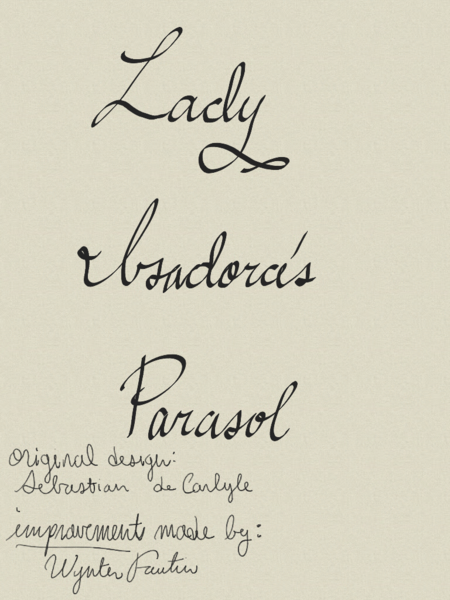 Lady
Ibsadora's
Parasol
original design:
Sebastian de Carlyle
improvement made by:
Wynter